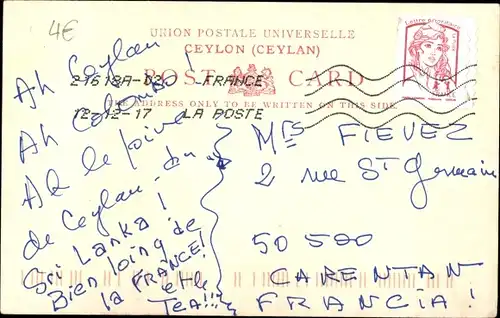 4€
UNION POSTALE UNIVERSELLE
CEYLON (CEYLAN)
POST CARD
THE ADDRESS ONLY TO BE WRITTEN ON THIS SIDE
21618A-02 FRANCE
12-12-17 LA POSTE
Lettre prioritaire
Ah Ceylan
Ah Colombo!
Ah le poivre
de Ceylan - du
Sri Lanka!
Bien loing de
la FRANCE!
et le
TEA!!!
Mrs FIEVEZ
2 rue St Germain
50500
CARENTAN
FRANCIA!